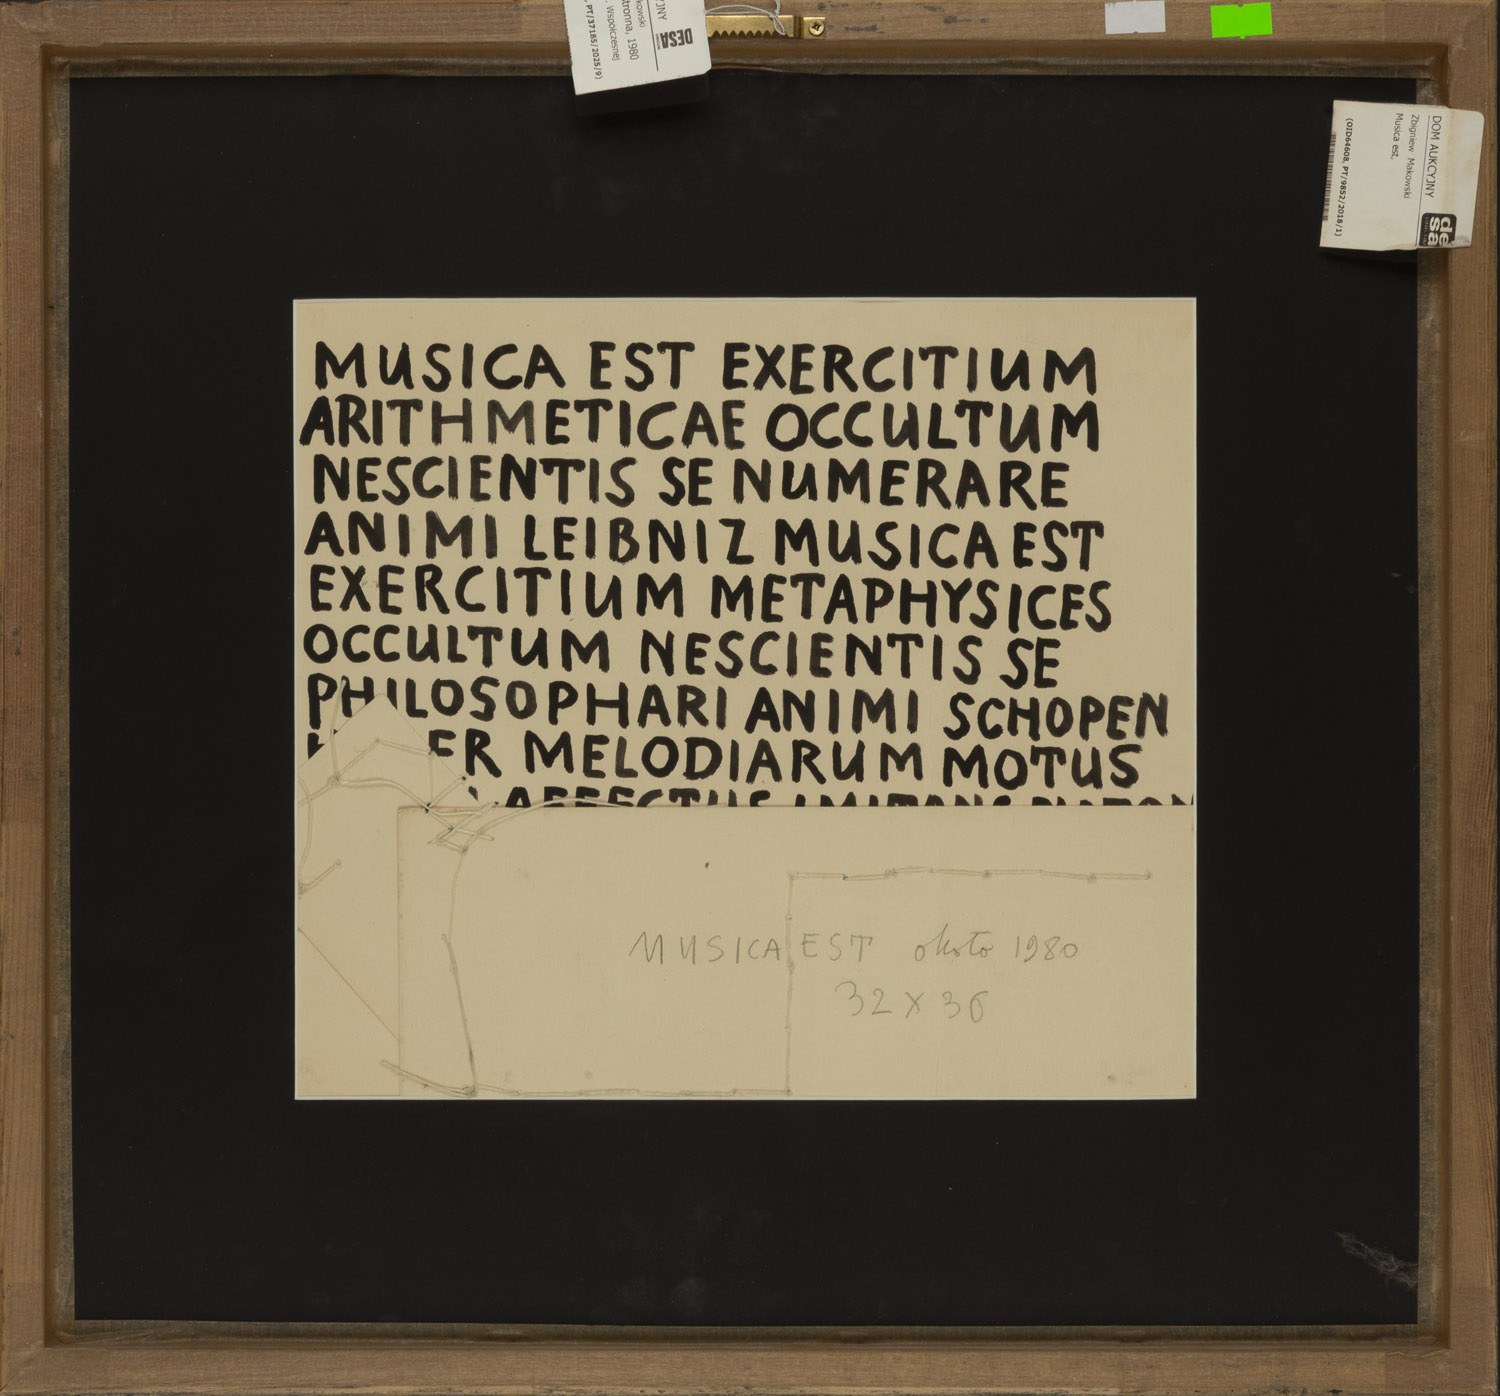 JNY
DESA
kowski
tronna, 1980
Współczesnej
PT/37185/2025/9)
DOM AUKCYJNY
desa
Zbigniew Makowski
Musica est,
(OID64608, PT/9852/2018/1)
MUSICA EST EXERCITIUM
ARITHMETICAE OCCULTUM
NESCIENTIS SE NUMERARE
ANIMI LEIBNIZ MUSICA EST
EXERCITIUM METAPHYSICES
OCCULTUM NESCIENTIS SE
PHILOSOPHARI ANIMI SCHOPEN
ER MELODIARUM MOTUS
AFFECTUS IMITANS PLATON
MUSICA EST około 1980
32 X 36